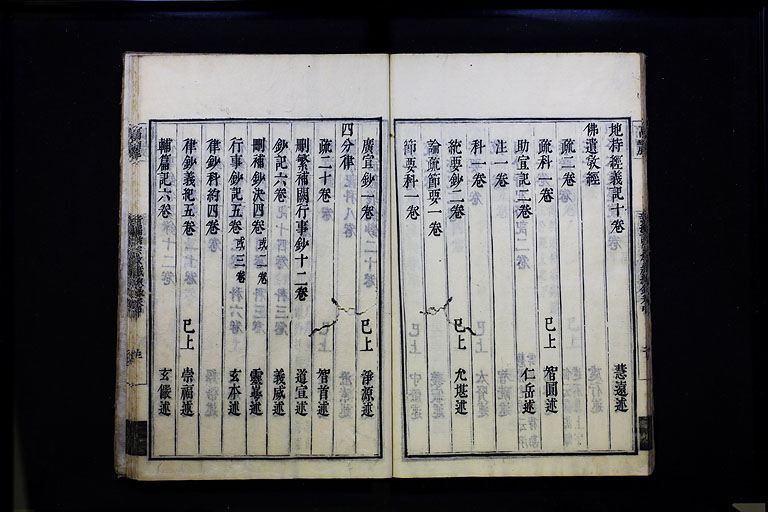 地持經義記十卷 慧遠述
佛遺敎經
疏二卷
疏科一卷 已上 智圓述
助宣記二卷 仁岳述
注一卷
科一卷
統要鈔二卷 已上 允堪述
論疏節要一卷
節要科一卷
廣宣鈔一卷 已上 淨源述
四分律
疏二十卷 智首述
刪繁補闕行事鈔十二卷 道宣述
鈔記六卷 義威述
刪補鈔決四卷 或二卷 靈崿述
行事鈔記五卷 或三卷 玄本述
律鈔科約四卷
律鈔義紀五卷 已上 崇福述
輔篇記六卷 玄儼述